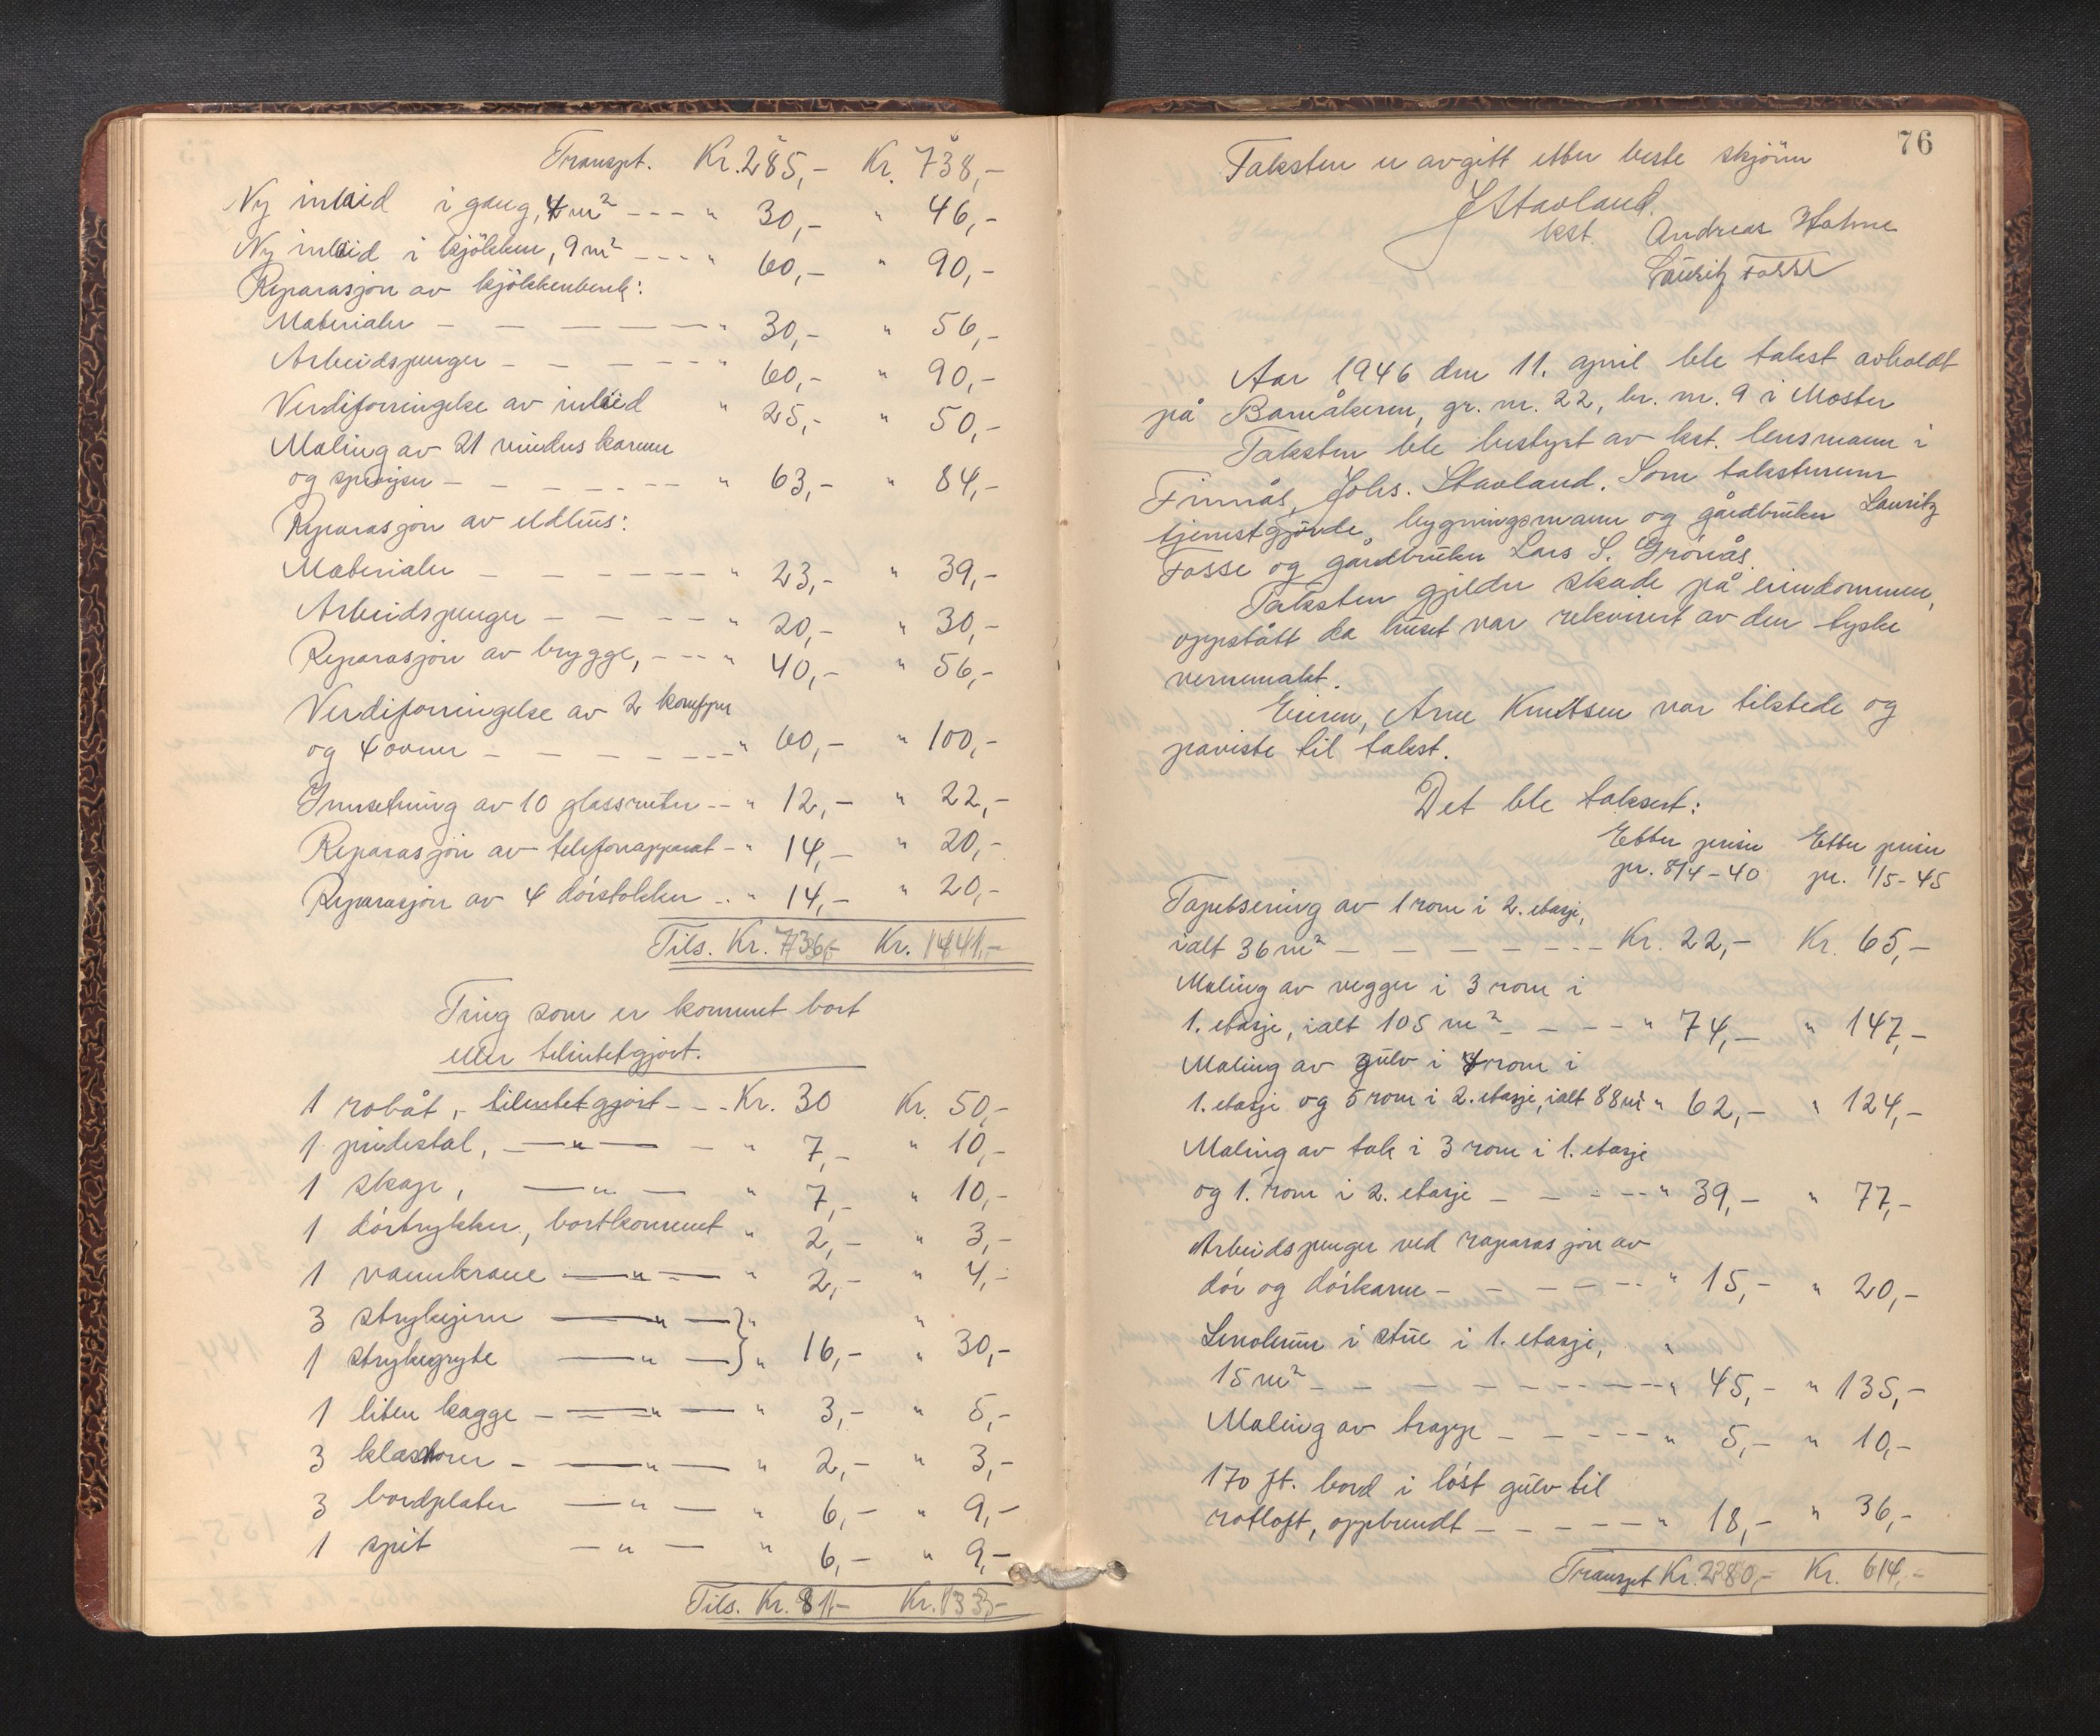 Transpt. Kr. 285,- Kr. 738,-
Ny inlaid i gang, 4 m² - - - " 30,- " 46,-
Ny inlaid i kjökken, 9 m² - - - " 60,- " 90,-
Reparasjon av kjökkenbenk:
Materialer - - - - - - " 30,- " 56,-
Arbeidspenger - - - - - - " 60,- " 90,-
Verdiforringelse av inlaid " 25,- " 50,-
Maling av 21 vindus karmer
og sprosser - - - - - - " 63,- " 84,-
Reparasjon av eldhus:
Materialer - - - - - - " 23,- " 39,-
Arbeidspenger - - - - - " 20,- " 30,-
Reparasjon av brygge, - - - " 40,- " 56,-
Verdiforringelse av 2 komfyrer
og 4 ovner - - - - - - " 60,- " 100,-
Innsetning av 10 glassruter - - " 12,- " 22,-
Reparasjon av telefonapparat - " 14,- " 20,-
Reparasjon av 4 dörstokker - . " 14,- " 20,-
Tils. Kr. 736,- Kr. 1441,-
Ting som er kommet bort
eller tilintetgjort.
1 robåt, tilintetgjort - - - Kr. 30 Kr. 50,-
1 pidestal, — " — - " 7,- " 10,-
1 skap, — " — " 7,- " 10,-
1 dörtrykker, bortkommet " 2,- " 3,-
1 vannkrane — " — " 2,- " 4,-
3 strykejern — " — } " "
1 strykegryte — " — } " 16,- " 30,-
1 liten kagge - — " — " 3,- " 5,-
3 - — " — " 2,- " 3,-
3 bordplater — " — " 6,- " 9,-
1 spit — " — " 6,- " 9,-
Tils. Kr. 81,- Kr. 133,-
76
Taksten er avgitt etter beste skjönn
J Stavland.
kst. Andreas Hahne
Lauritz Fosse
Aar 1946 den 11. april ble takst avholdt
på Barnåkeren, gr. nr. 22, br. nr. 9 i Moster
Taksten ble bestyrt av kst. lensmann i
Finnås, Johs. Stavland. Som takstmenn
tjenestgjorde bygningsmann og gårdbruker Lauritz
Fosse og gårdbruker Lars S. Grönås.
Taksten gjelder skade på eiendommen,
oppstått da huset var rekvirert av den tyske
vernemakt.
Eieren, Arne Knutsen var tilstede og
paviste til takst.
Det ble taksert:
Etter priser Etter priser
pr. 8/4-40 pr. 1/5-45
Tapetsering av 1 rom i 2. etasje,
ialt 36 m² - - - - - - - Kr. 22,- Kr. 65,-
Maling av vegger i 3 rom i
1. etasje, ialt 105 m² - - - - " 74,- " 147,-
Maling av gulv i 4 rom i
1. etasje og 5 rom i 2. etasje, ialt 88 m² " 62,- " 124,-
Maling av tak i 3 rom i 1. etasje
og 1. rom i 2. etasje - - - - - " 39,- " 77,-
Arbeidspenger ved raparasjon av
dör og dörkarm - - - - - - " 15,- " 20,-
Linoleum i stue i 1. etasje, "
15 m² - - - - - - - - - " 45,- " 135,-
Maling av trapp - - - - - - " 5,- " 10,-
170 ft. bord i löst gulv til
rotloft, oppbrendt - - - - - " 18,- " 36,-
Transpt Kr. 280,- Kr. 614,-